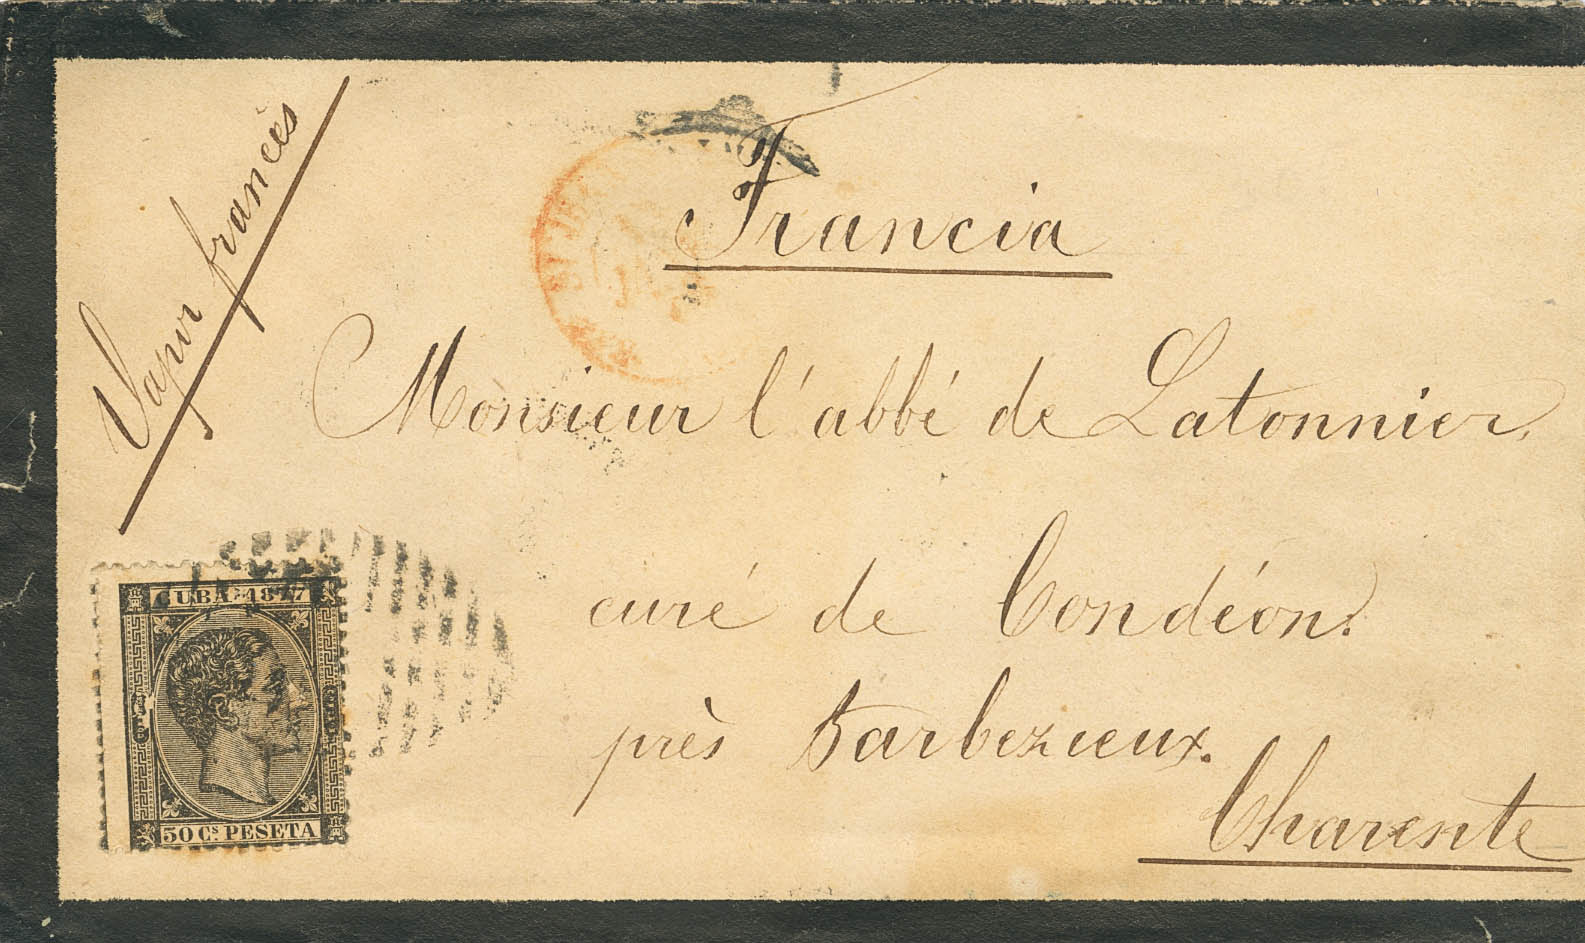 Vapor francès
Francia
Monsieur l'abbé de Latonnier,
curé de Condéon.
près Barbezieux.
Charente
CUBA 1877
50 Cs. PESETA